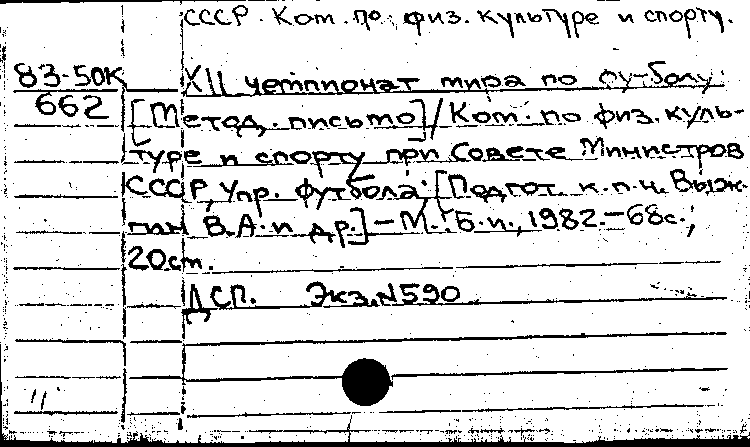 СССР. Ком. по физ. культуре и спорту.
83-50К XII чемпионат мира по футболу:
662 [Метод. письмо]/Ком. по физ. куль-
туре и спорту при Совете Министров
СССР, Упр. футбола; [Подгот. к.п.н. Выж-
гин В.А. и др.]-М.: Б.и., 1982.-68с.;
20см.
ДСП. Экз.N590